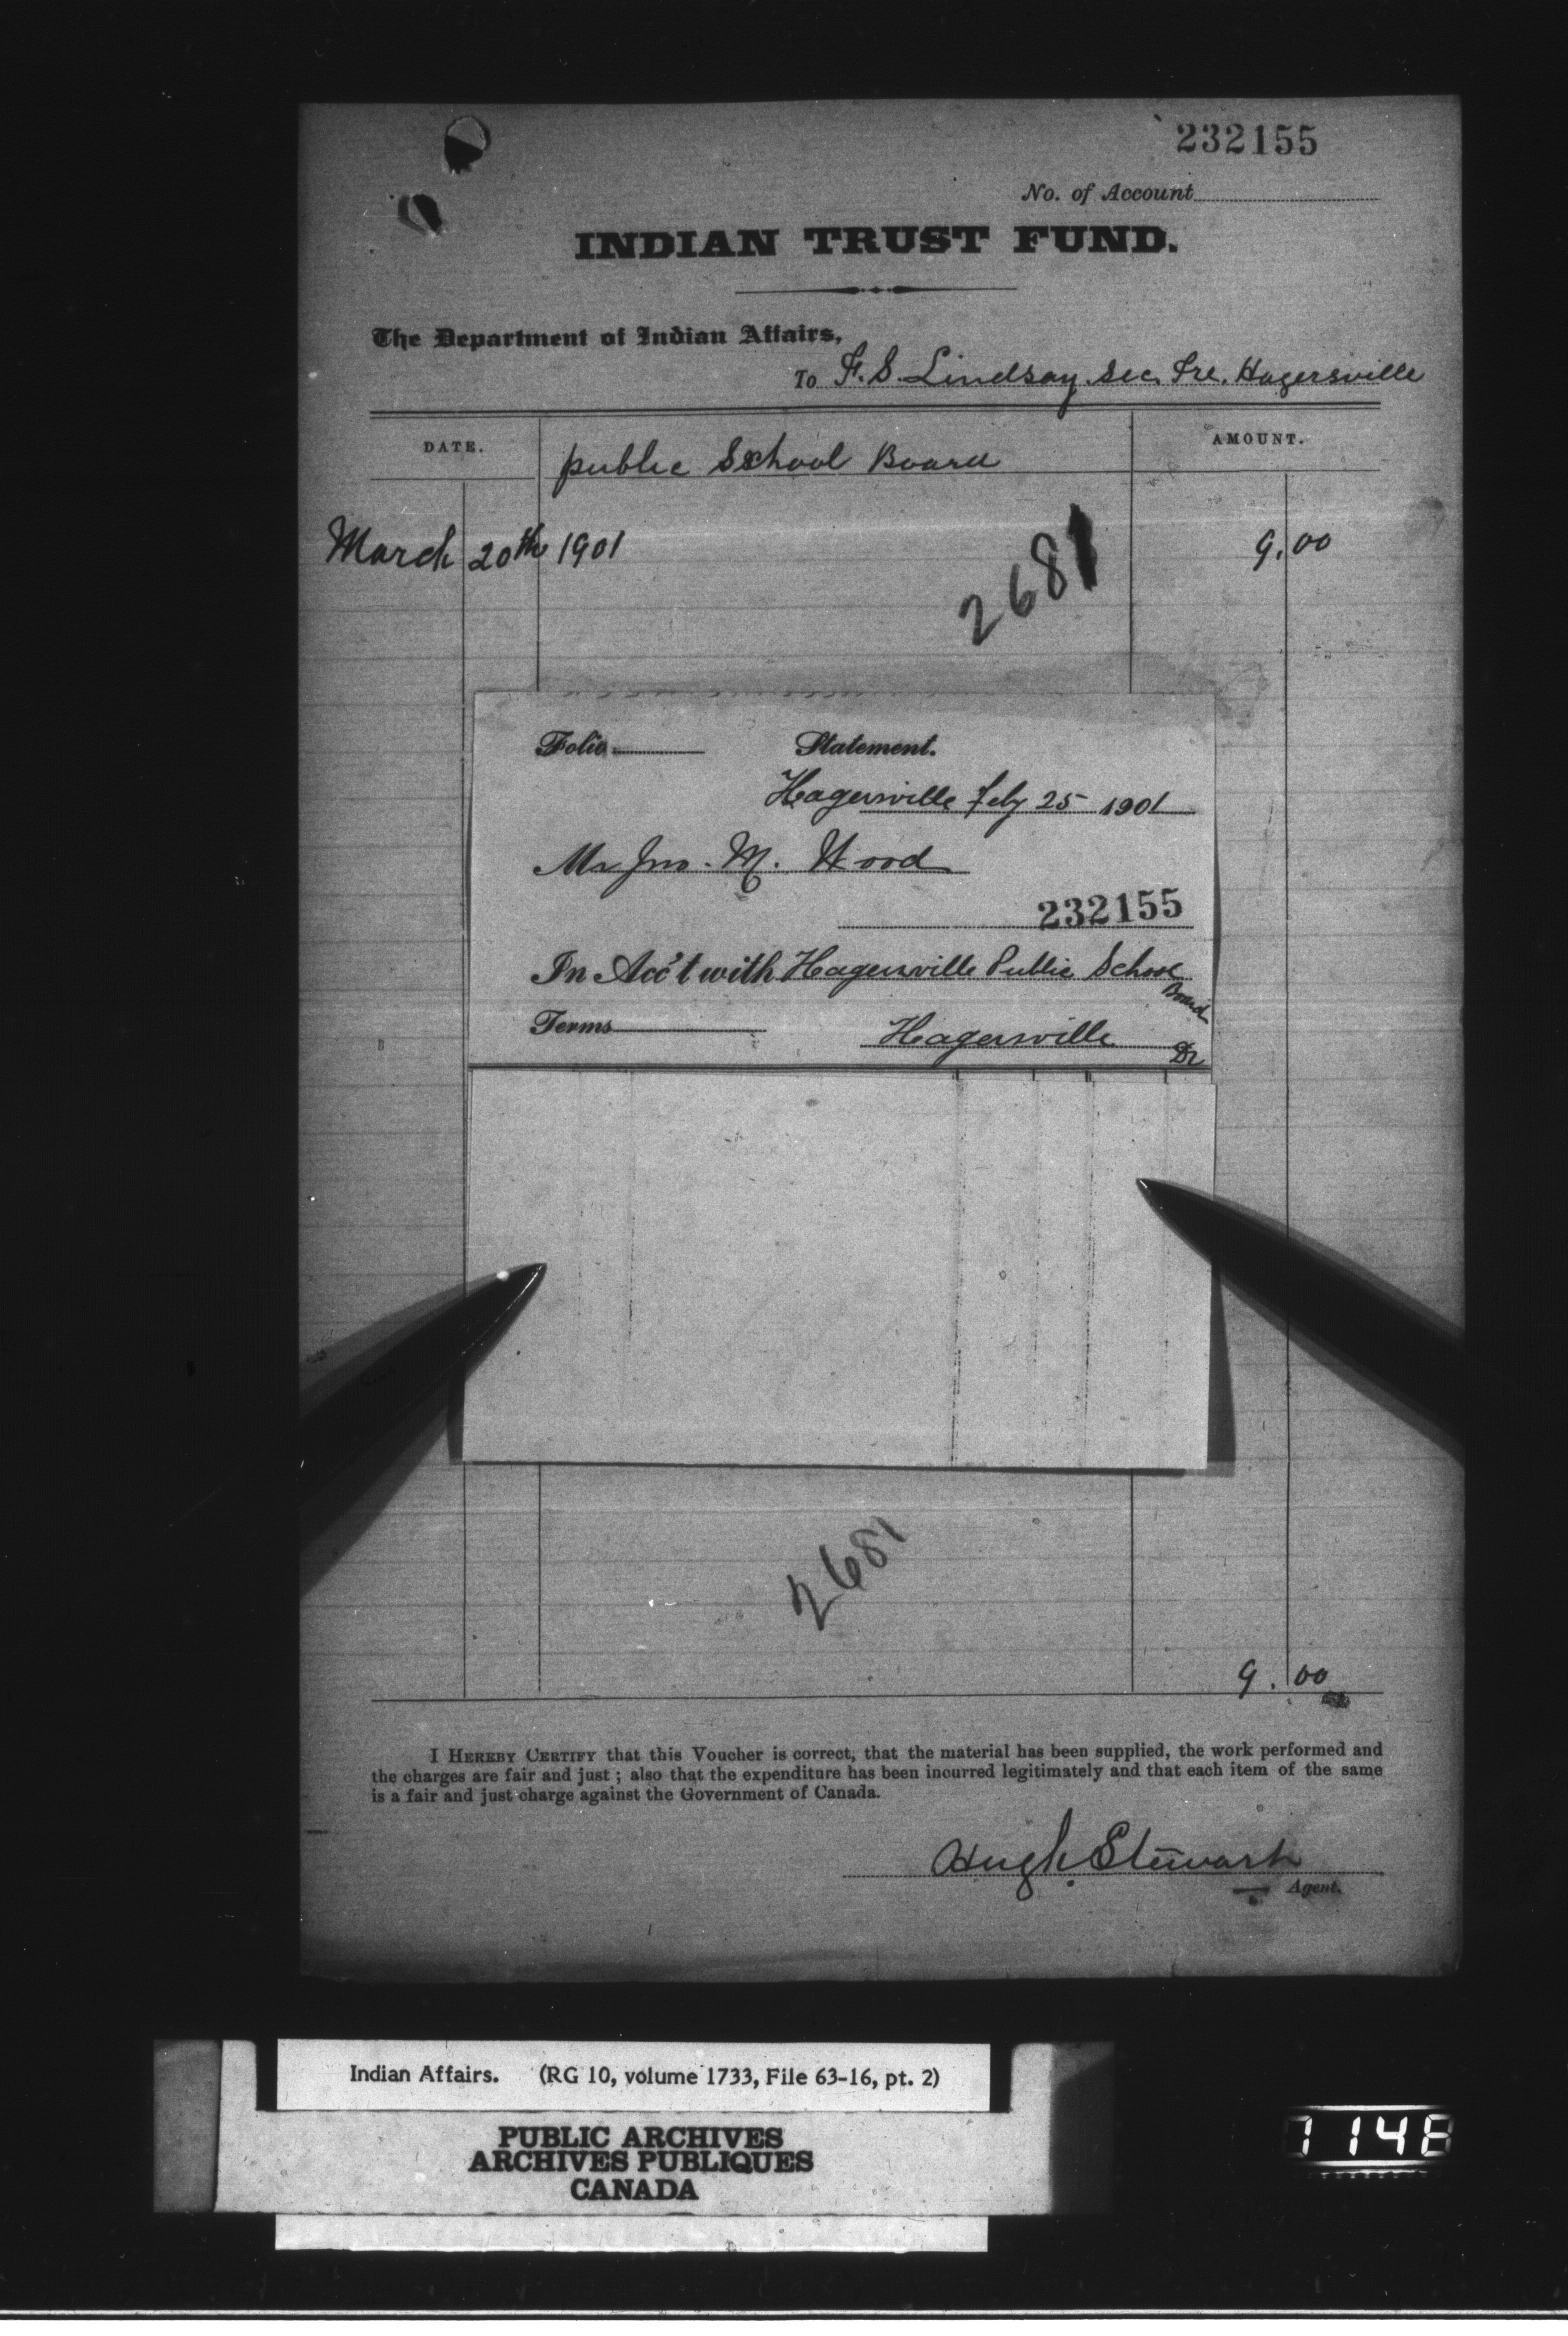 232155
No. of Account
INDIAN TRUST FUND.
The Department of Indian Affairs,
To F. S. Lindsay Sec. Tre. Hagersville
DATE.
AMOUNT.
public School Board
March 20th 1901
9.00
2681
Folio
Statement.
Hagersville Feby 25 1901
Mr Jno. M. Wood
232155
In Acc't with Hagersville Public School
Board
Terms
Hagersville
Dr
2681
9.00
I HEREBY CERTIFY that this Voucher is correct, that the material has been supplied, the work performed and
the charges are fair and just; also that the expenditure has been incurred legitimately and that each item of the same
is a fair and just charge against the Government of Canada.
Hugh Stewart
Agent.
Indian Affairs. (RG 10, volume 1733, File 63-16, pt. 2)
PUBLIC ARCHIVES
ARCHIVES PUBLIQUES
CANADA
1148